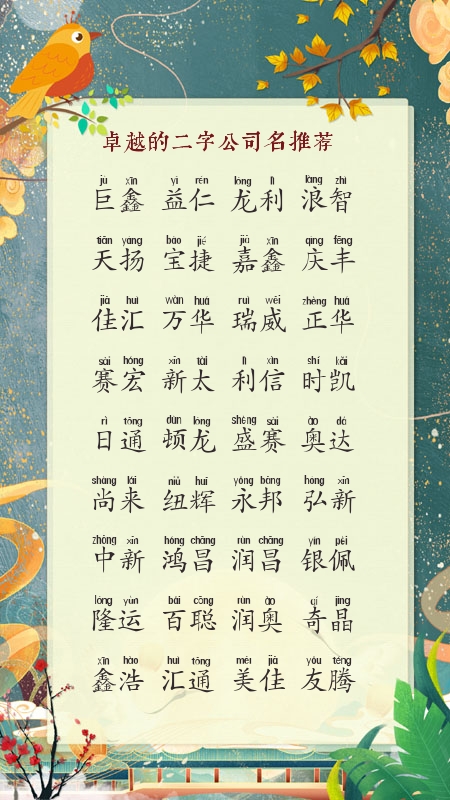 卓越的二字公司名推荐
jù xīn yì rén lóng lì làng zhì
巨鑫 益仁 龙利 浪智
tiān yáng bǎo jié jiā xīn qìng fēng
天扬 宝捷 嘉鑫 庆丰
jiā huì wàn huá ruì wēi zhèng huá
佳汇 万华 瑞威 正华
sài hóng xīn tài lì xìn shí kǎi
赛宏 新太 利信 时凯
rì tōng dùn lóng shèng sài ào dá
日通 顿龙 盛赛 奥达
shàng lái niǔ huī yǒng bāng hóng xīn
尚来 纽辉 永邦 弘新
zhōng xīn hóng chāng rùn chāng yín pèi
中新 鸿昌 润昌 银佩
lóng yùn bǎi cōng rùn ào qí jīng
隆运 百聪 润奥 奇晶
xīn hào huì tōng měi jiā yǒu téng
鑫浩 汇通 美佳 友腾